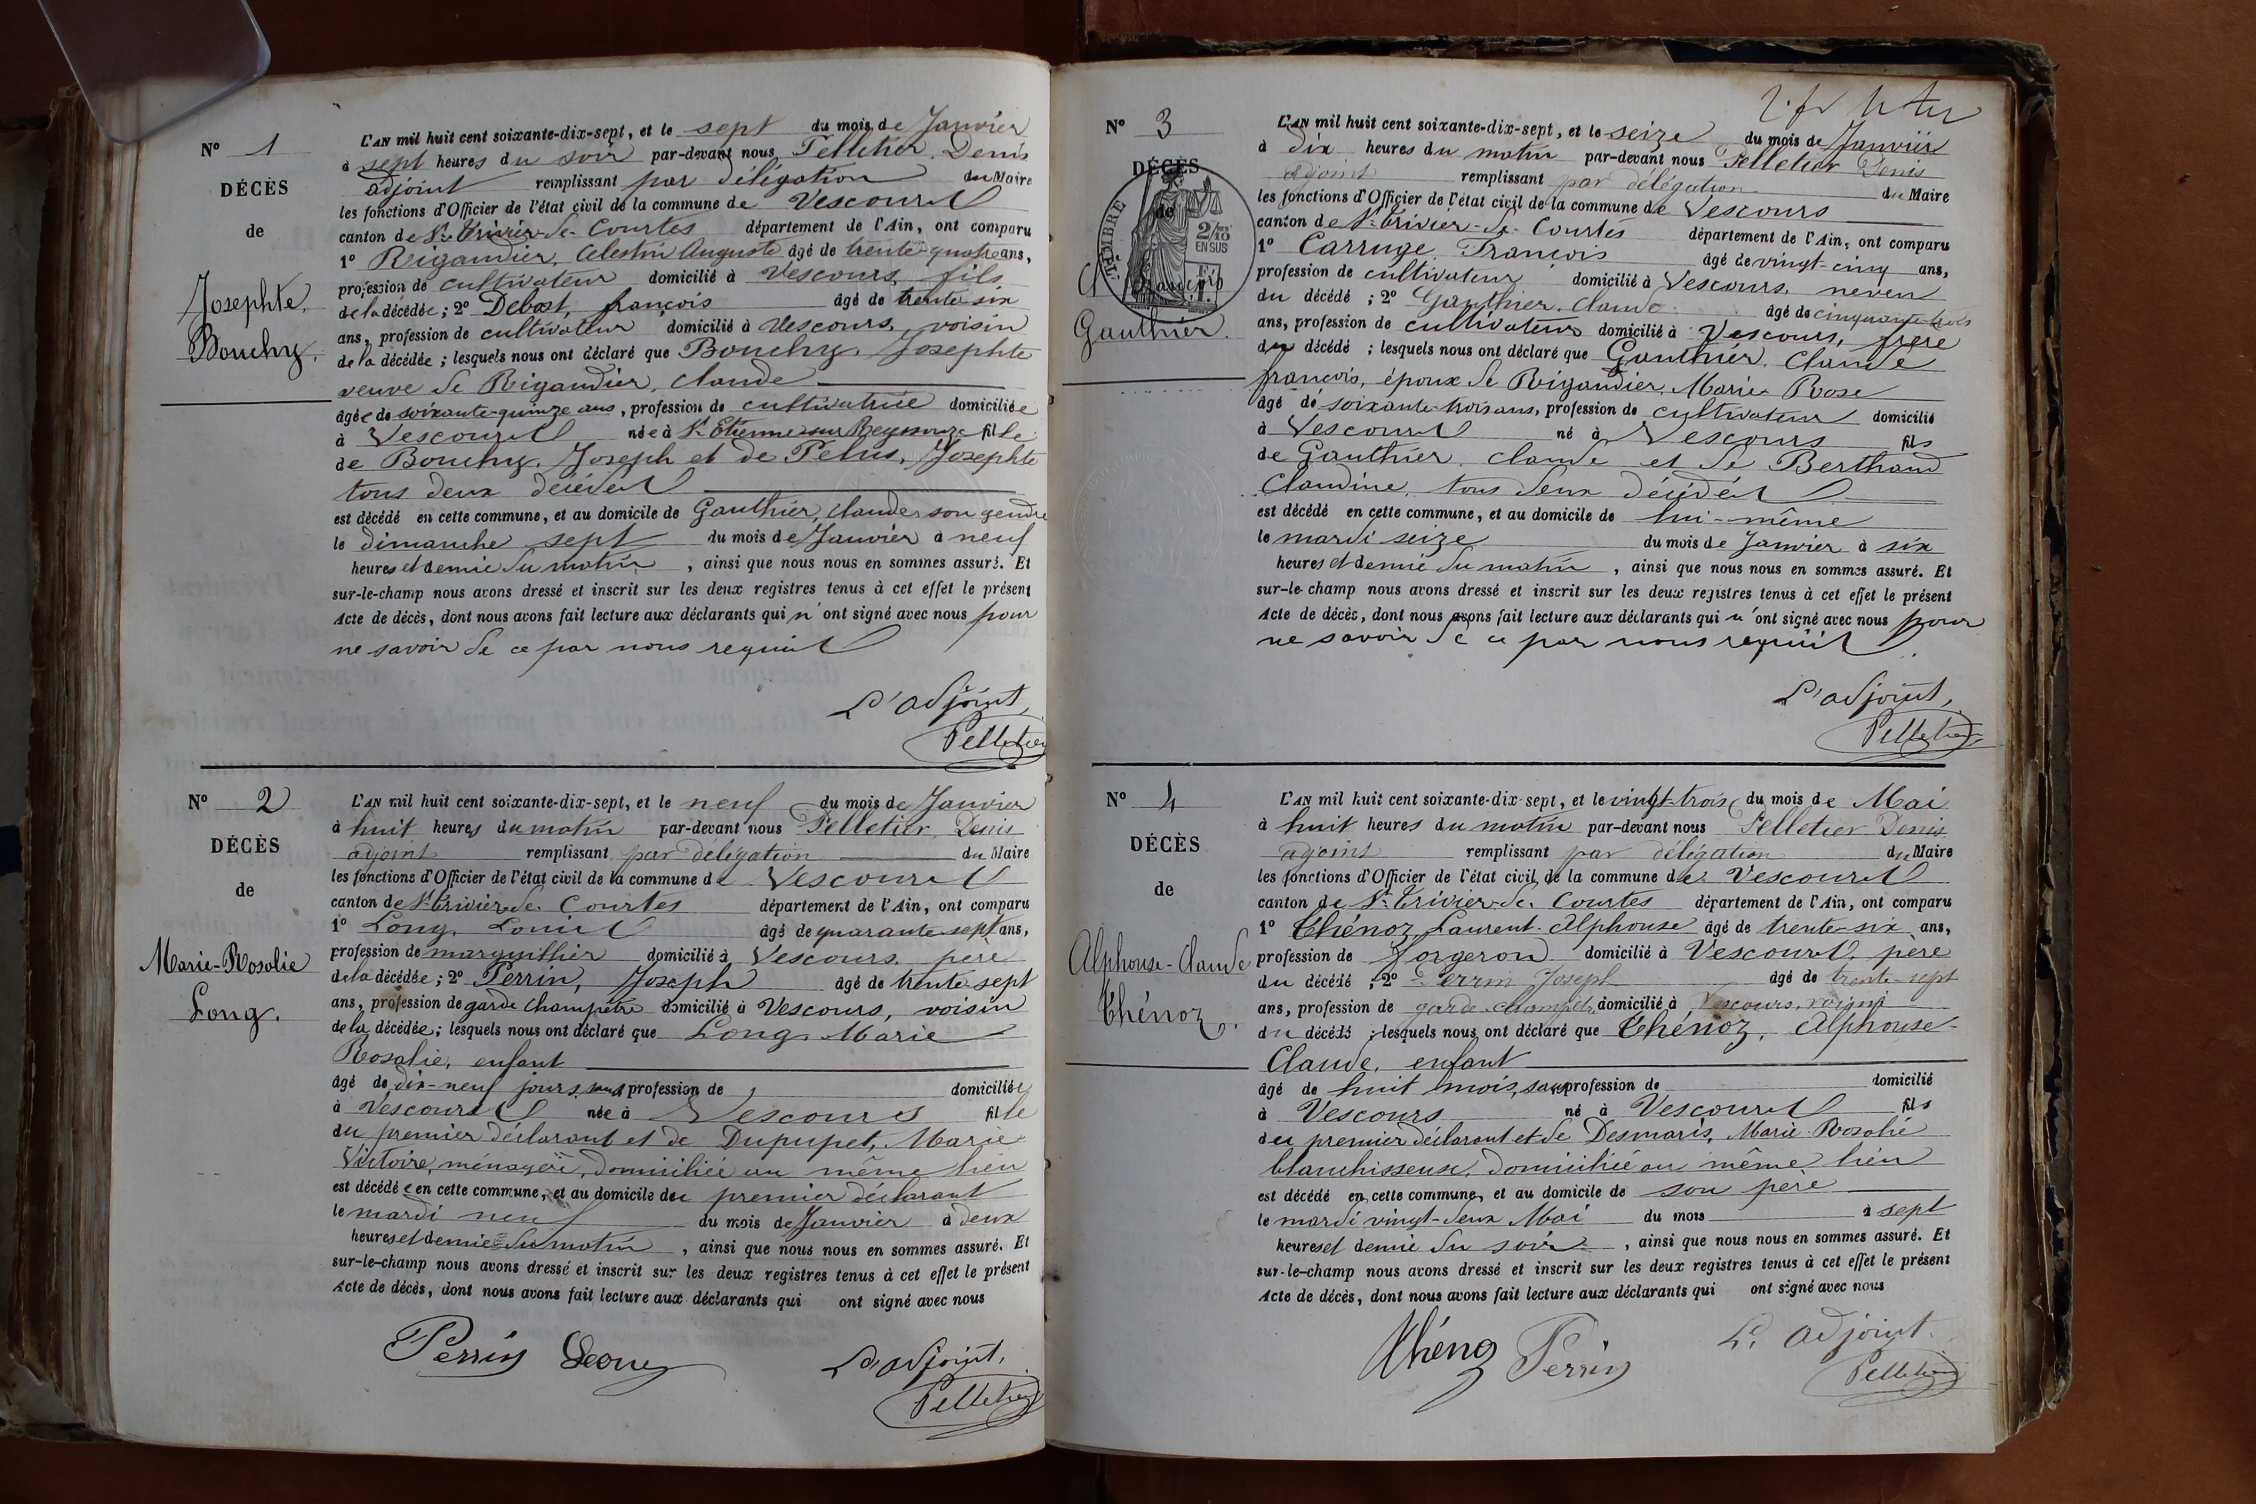 N° 1
DÉCÈS
de
Josephte
Bouchy.
L'AN mil huit cent soixante-dix-sept, et le sept du mois de Janvier
à sept heures du soir par-devant nous Pelletier, Denis
adjoint remplissant par délégation du Maire
les fonctions d'Officier de l'état civil de la commune de Vescours
canton de St Trivier-de-Courtes département de l'Ain, ont comparu
1° Rigaudier, Celestin Auguste âgé de trente-quatre ans,
profession de cultivateur domicilié à Vescours, fils
de la décédée ; 2° Debost, françois âgé de trente six
ans, profession de cultivateur domicilié à Vescours, voisin
de la décédée ; lesquels nous ont déclaré que Bouchy, Josephte
veuve de Rigaudier, Claude
âgée de soixante-quinze ans, profession de cultivatrice domiciliée
à Vescours née à St Etienne sur Reyssouze fille
de Bouchy, Joseph et de Pelus, Josephte
tous deux décédés
est décédé en cette commune, et au domicile de Gauthier, Claude son gendre
le dimanche sept du mois de Janvier à neuf
heures et demie du matin, ainsi que nous nous en sommes assuré. Et
sur-le-champ nous avons dressé et inscrit sur les deux registres tenus à cet effet le présent
Acte de décès, dont nous avons fait lecture aux déclarants qui n'ont signé avec nous pour
ne savoir de ce par nous requis
L'adjoint,
Pelletier
N° 2
DÉCÈS
de
Marie-Rosalie
Long.
L'AN mil huit cent soixante-dix-sept, et le neuf du mois de Janvier
à huit heures du matin par-devant nous Pelletier Denis
adjoint remplissant par délégation du Maire
les fonctions d'Officier de l'état civil de la commune de Vescours
canton de St Trivier-de-Courtes département de l'Ain, ont comparu
1° Long, Louis âgé de quarante sept ans,
profession de marguillier domicilié à Vescours, père
de la décédée ; 2° Perrin, Joseph âgé de trente sept
ans, profession de garde champêtre domicilié à Vescours, voisin
de la décédée ; lesquels nous ont déclaré que Long, Marie
Rosalie, enfant
âgé de dix-neuf jours, sans profession de domiciliée
à Vescours née à Vescours fille
du premier déclarant et de Dupupet, Marie
Victoire, ménagère, domiciliée au même lieu
est décédée en cette commune, et au domicile du premier déclarant
le mardi neuf du mois de Janvier à deux
heures et demie du matin, ainsi que nous nous en sommes assuré. Et
sur-le-champ nous avons dressé et inscrit sur les deux registres tenus à cet effet le présent
Acte de décès, dont nous avons fait lecture aux déclarants qui ont signé avec nous
Perrin Long
L'adjoint,
Pelletier
N° 3
DÉCÈS
de
TIMBRE
2/10
EN SUS
François
Gauthier.
L'AN mil huit cent soixante-dix-sept, et le seize du mois de Janvier
à dix heures du matin par-devant nous Pelletier Denis
adjoint remplissant par délégation du Maire
les fonctions d'Officier de l'état civil de la commune de Vescours
canton de St Trivier-de-Courtes département de l'Ain, ont comparu
1° Carruge, François âgé de vingt-cinq ans,
profession de cultivateur domicilié à Vescours, neveu
du décédé ; 2° Gauthier, Claude âgé de cinquante-trois
ans, profession de cultivateur domicilié à Vescours, frère
du décédé ; lesquels nous ont déclaré que Gauthier, Claude
françois, époux de Rigaudier, Marie Rose
âgé de soixante-trois ans, profession de cultivateur domicilié
à Vescours né à Vescours fils
de Gauthier, Claude et de Berthaud
Claudine, tous deux décédés
est décédé en cette commune, et au domicile de lui-même
le mardi seize du mois de Janvier à six
heures et demie du matin, ainsi que nous nous en sommes assuré. Et
sur-le-champ nous avons dressé et inscrit sur les deux registres tenus à cet effet le présent
Acte de décès, dont nous avons fait lecture aux déclarants qui n'ont signé avec nous pour
ne savoir de ce par nous requis.
L'adjoint,
Pelletier
N° 4
DÉCÈS
de
Alphonse-Claude
Thénoz.
L'AN mil huit cent soixante-dix-sept, et le vingt-trois du mois de Mai
à huit heures du matin par-devant nous Pelletier Denis
adjoint remplissant par délégation du Maire
les fonctions d'Officier de l'état civil de la commune de Vescours
canton de St Trivier-de-Courtes département de l'Ain, ont comparu
1° Thénoz, Laurent Alphonse âgé de trente-six ans,
profession de forgeron domicilié à Vescours, père
du décédé ; 2° Perrin Joseph âgé de trente-sept
ans, profession de garde-champêtre domicilié à Vescours, voisin
du décédé ; lesquels nous ont déclaré que Thénoz, Alphonse
Claude, enfant
âgé de huit mois, sans profession de domicilié
à Vescours né à Vescours fils
du premier déclarant et de Desmaris, Marie Rosalie
blanchisseuse, domiciliée au même lieu
est décédé en cette commune, et au domicile de son père
le mardi vingt-deux Mai du mois à sept
heures et demie du soir, ainsi que nous nous en sommes assuré. Et
sur-le-champ nous avons dressé et inscrit sur les deux registres tenus à cet effet le présent
Acte de décès, dont nous avons fait lecture aux déclarants qui ont signé avec nous
Thénoz Perrin
L'adjoint.
Pelletier